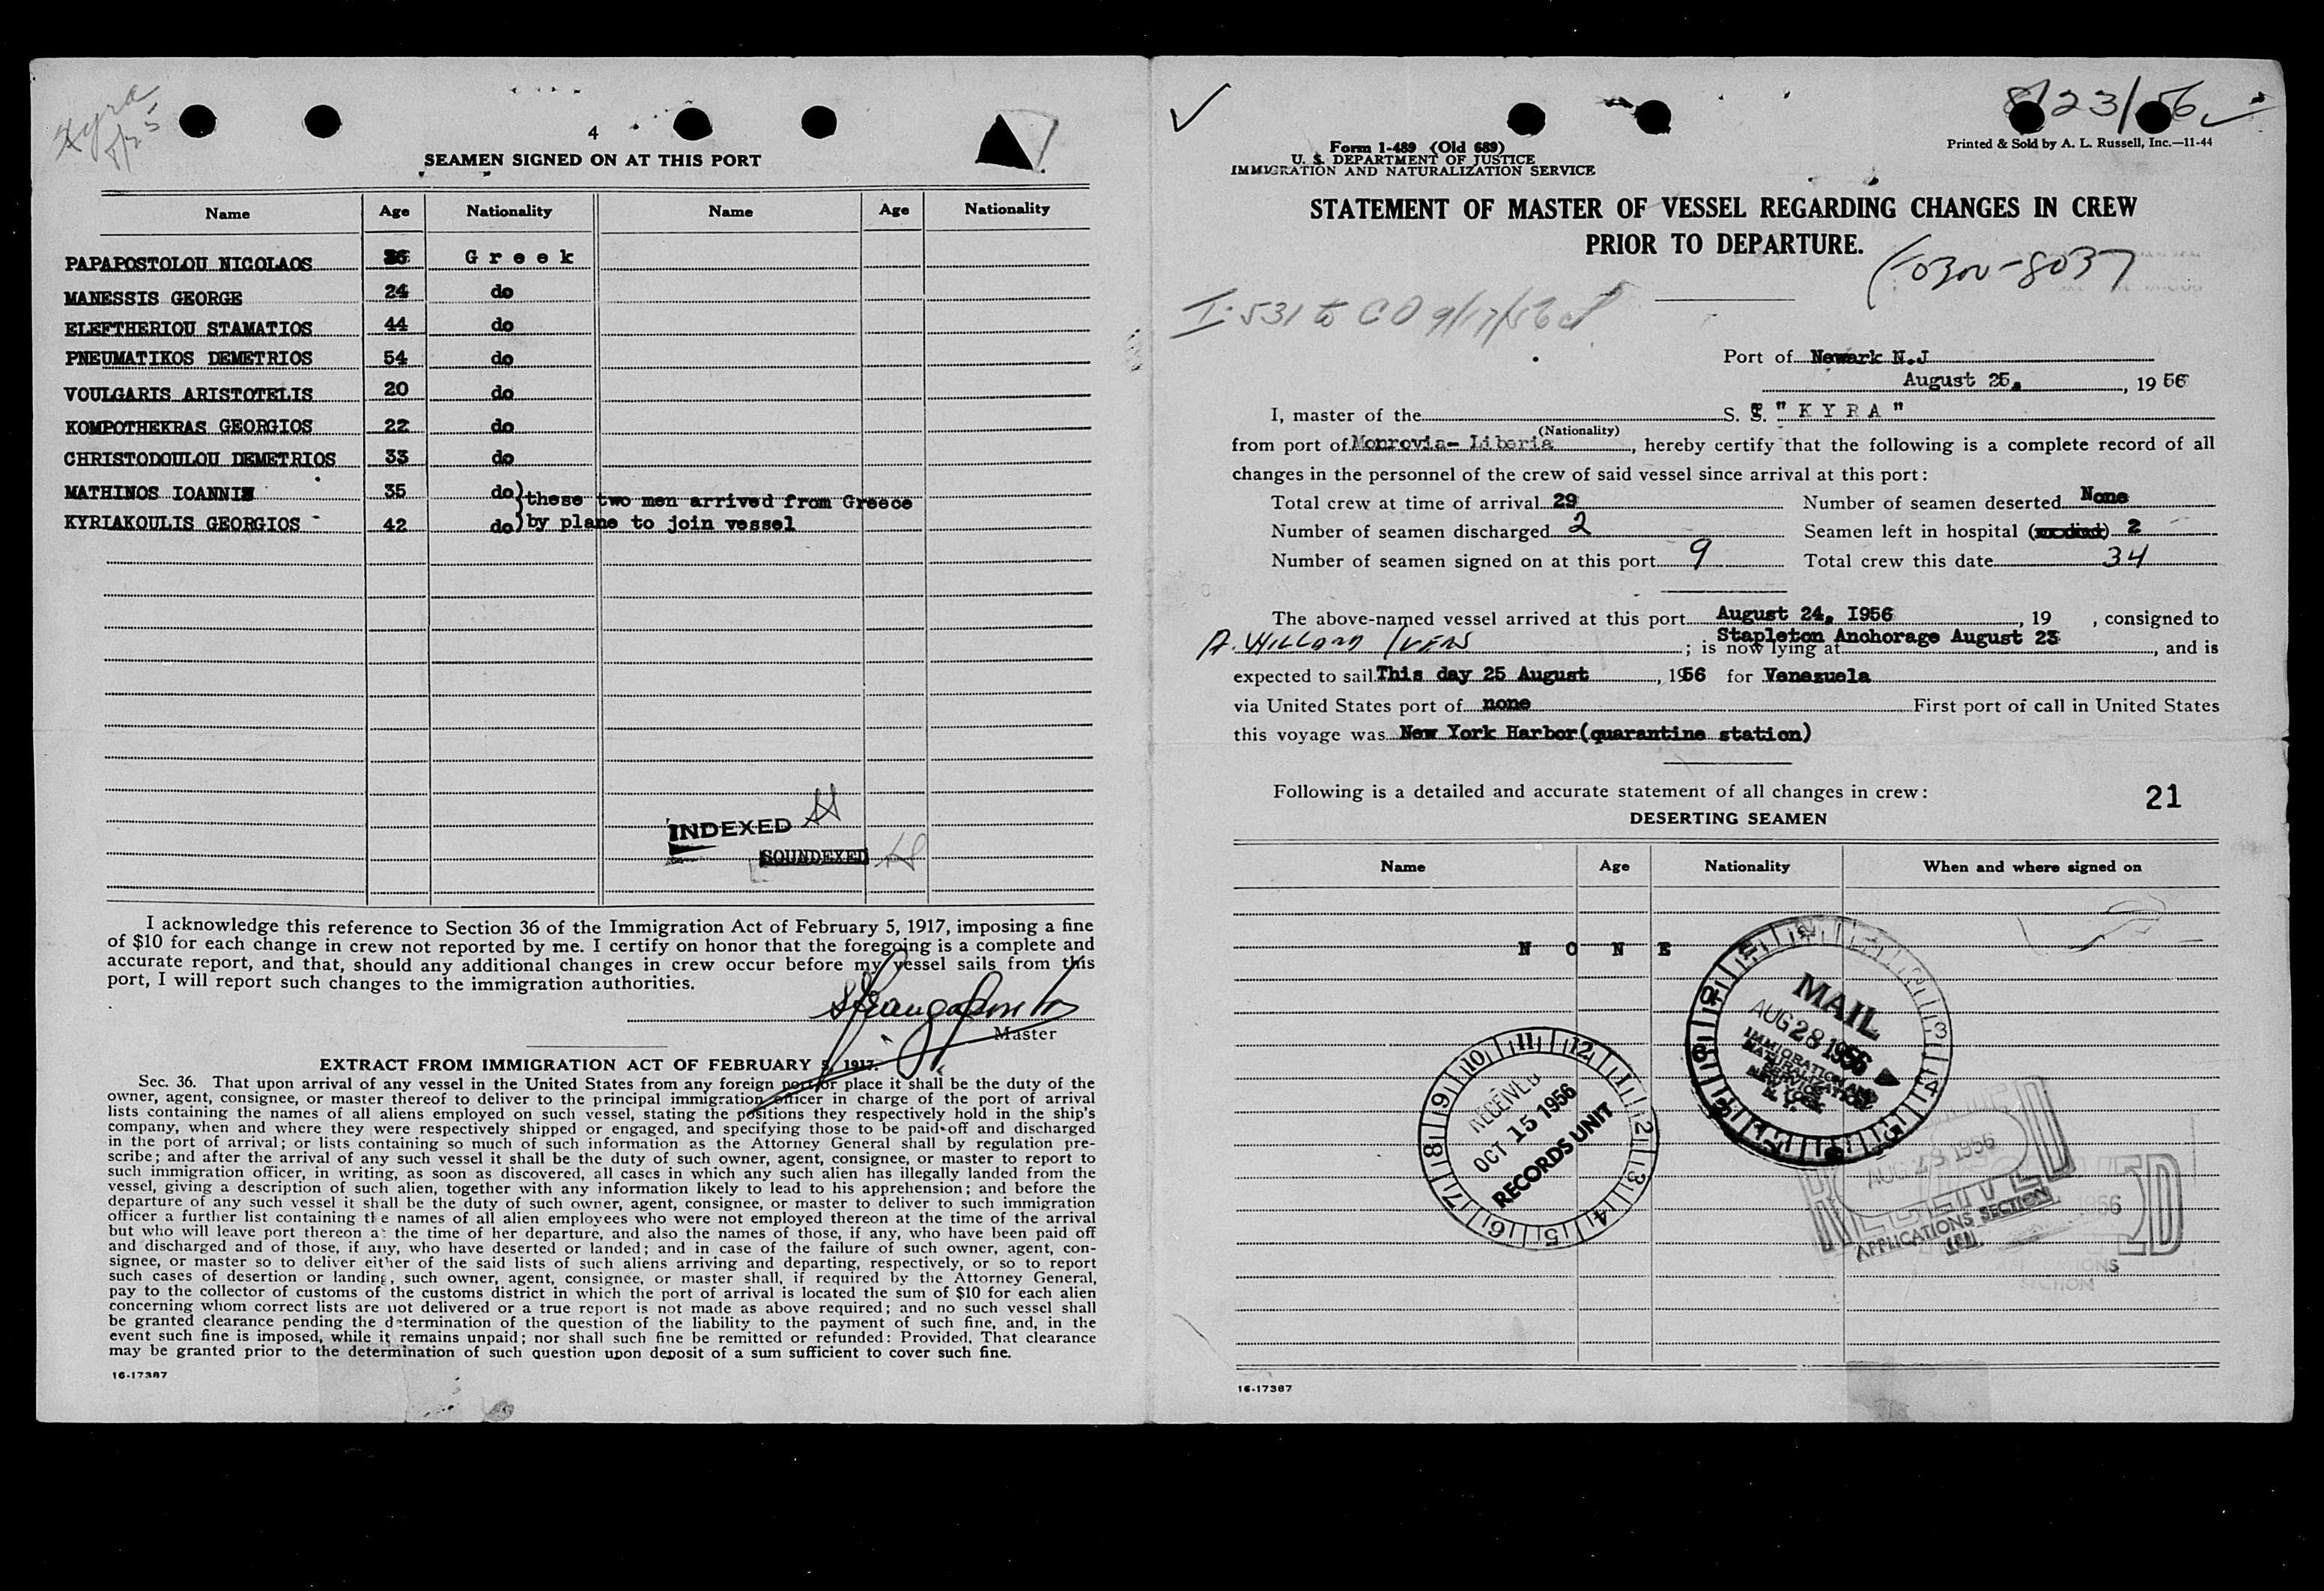 Kyra
4
SEAMEN SIGNED ON AT THIS PORT
Name Age Nationality Name Age Nationality
PAPAPOSTOLOU NICOLAOS 36 Greek
MANESSIS GEORGE 24 do
ELEFTHERIOU STAMATIOS 44 do
PNEUMATIKOS DEMETRIOS 54 do
VOULGARIS ARISTOTELIS 20 do
KOMPOTHEKRAS GEORGIOS 22 do
CHRISTODOULOU DEMETRIOS 33 do
MATHINOS IOANNIS 35 do) these two men arrived from Greece
KYRIAKOULIS GEORGIOS 42 do) by plane to join vessel
INDEXED
SOUNDEXED
I acknowledge this reference to Section 36 of the Immigration Act of February 5, 1917, imposing a fine
of $10 for each change in crew not reported by me. I certify on honor that the foregoing is a complete and
accurate report, and that, should any additional changes in crew occur before my vessel sails from this
port, I will report such changes to the immigration authorities.
Master
EXTRACT FROM IMMIGRATION ACT OF FEBRUARY 5, 1917.
Sec. 36. That upon arrival of any vessel in the United States from any foreign port or place it shall be the duty of the
owner, agent, consignee, or master thereof to deliver to the principal immigration officer in charge of the port of arrival
lists containing the names of all aliens employed on such vessel, stating the positions they respectively hold in the ship's
company, when and where they were respectively shipped or engaged, and specifying those to be paid off and discharged
in the port of arrival; or lists containing so much of such information as the Attorney General shall by regulation pre-
scribe; and after the arrival of any such vessel it shall be the duty of such owner, agent, consignee, or master to report to
such immigration officer, in writing, as soon as discovered, all cases in which any such alien has illegally landed from the
vessel, giving a description of such alien, together with any information likely to lead to his apprehension; and before the
departure of any such vessel it shall be the duty of such owner, agent, consignee, or master to deliver to such immigration
officer a further list containing the names of all alien employees who were not employed thereon at the time of the arrival
but who will leave port thereon at the time of her departure, and also the names of those, if any, who have been paid off
and discharged and of those, if any, who have deserted or landed; and in case of the failure of such owner, agent, con-
signee, or master so to deliver either of the said lists of such aliens arriving and departing, respectively, or so to report
such cases of desertion or landing, such owner, agent, consignee, or master shall, if required by the Attorney General,
pay to the collector of customs of the customs district in which the port of arrival is located the sum of $10 for each alien
concerning whom correct lists are not delivered or a true report is not made as above required; and no such vessel shall
be granted clearance pending the determination of the question of the liability to the payment of such fine, and, in the
event such fine is imposed, while it remains unpaid; nor shall such fine be remitted or refunded: Provided, That clearance
may be granted prior to the determination of such question upon deposit of a sum sufficient to cover such fine.
16-17387
8/23/56
Form 1-489 (Old 689)
U. S. DEPARTMENT OF JUSTICE
IMMIGRATION AND NATURALIZATION SERVICE
Printed & Sold by A. L. Russell, Inc.—11-44
STATEMENT OF MASTER OF VESSEL REGARDING CHANGES IN CREW
PRIOR TO DEPARTURE.
I-531 to CO 9/17/56
Port of Newark N.J
August 25, , 19 56
I, master of the S. S. "KYRA"
(Nationality)
from port of Monrovia- Liberia , hereby certify that the following is a complete record of all
changes in the personnel of the crew of said vessel since arrival at this port:
Total crew at time of arrival 29 Number of seamen deserted None
Number of seamen discharged 2 Seamen left in hospital (or died) 2
Number of seamen signed on at this port 9 Total crew this date 34
The above-named vessel arrived at this port August 24, I956 , 19 , consigned to
A. Willard Ivers ; is now lying at Stapleton Anchorage August 23 , and is
expected to sail This day 25 August , 1956 for Venezuela
via United States port of none First port of call in United States
this voyage was New York Harbor(quarantine station)
Following is a detailed and accurate statement of all changes in crew:
21
DESERTING SEAMEN
Name Age Nationality When and where signed on
NONE
MAIL
AUG 28 1956
IMMIGRATION AND
NATURALIZATION
SERVICE
NEW YORK
N. Y.
RECEIVED
OCT 15 1956
RECORDS UNIT
AUG 28 1956
RECEIVED
APPLICATIONS SECTION
1956
SECTION
16-17387